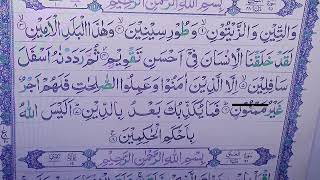 بِسْمِ اللّٰهِ الرَّحْمٰنِ الرَّحِيْمِ
وَالتِّيْنِ وَالزَّيْتُوْنِ ۙ وَطُوْرِ سِيْنِيْنَ ۙ وَهٰذَا الْبَلَدِ الْاَمِيْنِ ۙ
لَقَدْ خَلَقْنَا الْاِنْسَانَ فِيْ اَحْسَنِ تَقْوِيْمٍ ثُمَّ رَدَدْنٰهُ اَسْفَلَ
سٰفِلِيْنَ ۙ اِلَّا الَّذِيْنَ اٰمَنُوْا وَعَمِلُوا الصّٰلِحٰتِ فَلَهُمْ اَجْرٌ
غَيْرُ مَمْنُوْنٍ ؕ فَمَا يُكَذِّبُكَ بَعْدُ بِالدِّيْنِ ؕ اَلَيْسَ اللّٰهُ
بِاَحْكَمِ الْحٰكِمِيْنَ
بِسْمِ اللّٰهِ الرَّحْمٰنِ الرَّحِيْمِ